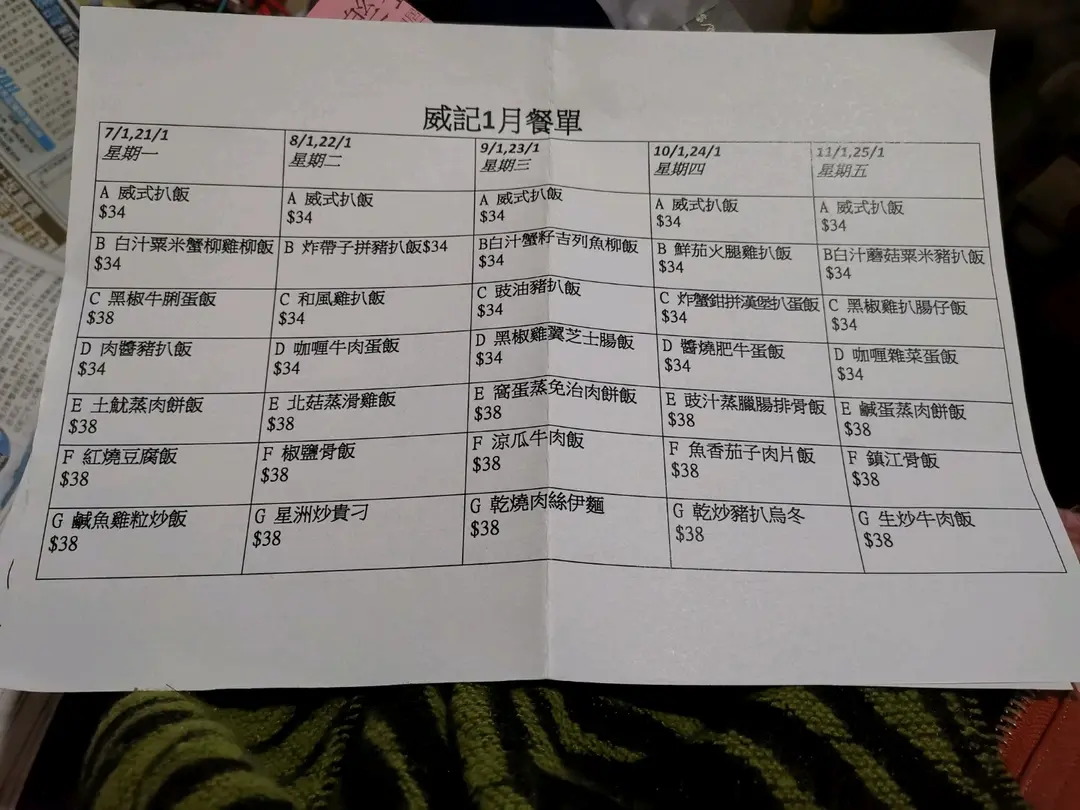 威記1月餐單
7/1,21/1
星期一
8/1,22/1
星期二
9/1,23/1
星期三
10/1,24/1
星期四
11/1,25/1
星期五
A 威式扒飯
$34
A 威式扒飯
$34
A 威式扒飯
$34
A 威式扒飯
$34
A 威式扒飯
$34
B 白汁粟米蟹柳雞柳飯
$34
B 炸帶子拼豬扒飯$34
B白汁蟹籽吉列魚柳飯
$34
B 鮮茄火腿雞扒飯
$34
B白汁蘑菇粟米豬扒飯
$34
C 黑椒牛脷蛋飯
$38
C 和風雞扒飯
$34
C 豉油豬扒飯
$34
C 炸蟹鉗拼漢堡扒蛋飯
$34
C 黑椒雞扒腸仔飯
$34
D 肉醬豬扒飯
$34
D 咖喱牛肉蛋飯
$34
D 黑椒雞翼芝士腸飯
$34
D 醬燒肥牛蛋飯
$34
D 咖喱雜菜蛋飯
$34
E 土魷蒸肉餅飯
$38
E 北菇蒸滑雞飯
$38
E 窩蛋蒸免治肉餅飯
$38
E 豉汁蒸臘腸排骨飯
$38
E 鹹蛋蒸肉餅飯
$38
F 紅燒豆腐飯
$38
F 椒鹽骨飯
$38
F 涼瓜牛肉飯
$38
F 魚香茄子肉片飯
$38
F 鎮江骨飯
$38
G 鹹魚雞粒炒飯
$38
G 星洲炒貴刁
$38
G 乾燒肉絲伊麵
$38
G 乾炒豬扒烏冬
$38
G 生炒牛肉飯
$38